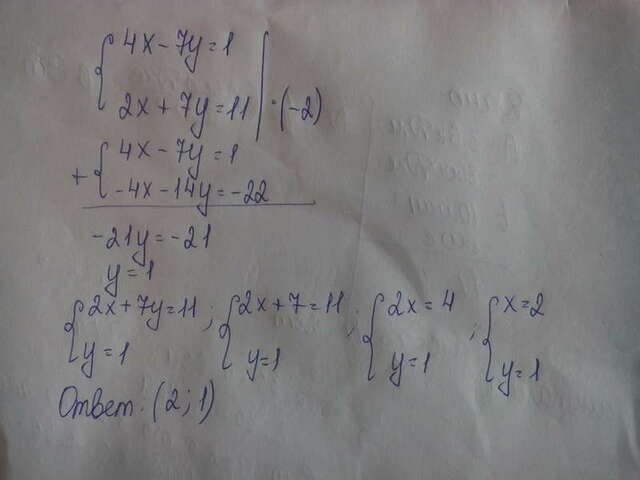 4x-7y=1
2x+7y=11 | ·(-2)
4x-7y=1
+
-4x-14y=-22
-21y=-21
y=1
2x+7y=11 ; 2x+7=11 ; 2x=4 ; x=2
y=1 y=1 y=1 y=1
Ответ. (2;1)